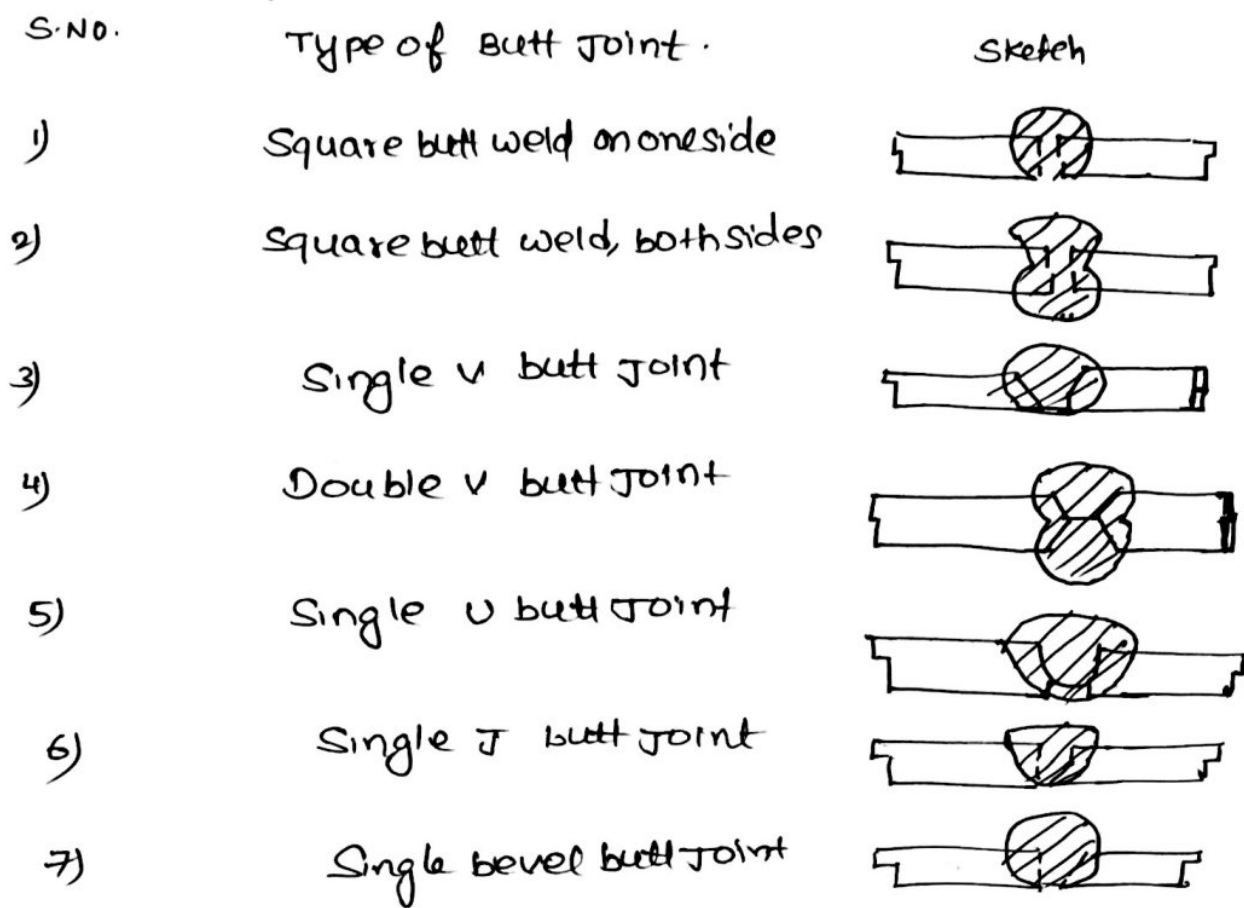 S.NO. Type of Butt Joint. Sketch
1) Square butt weld on oneside
2) Square butt weld, both sides
3) Single V butt Joint
4) Double V butt Joint
5) Single U butt Joint
6) Single J butt Joint
7) Single bevel butt Joint